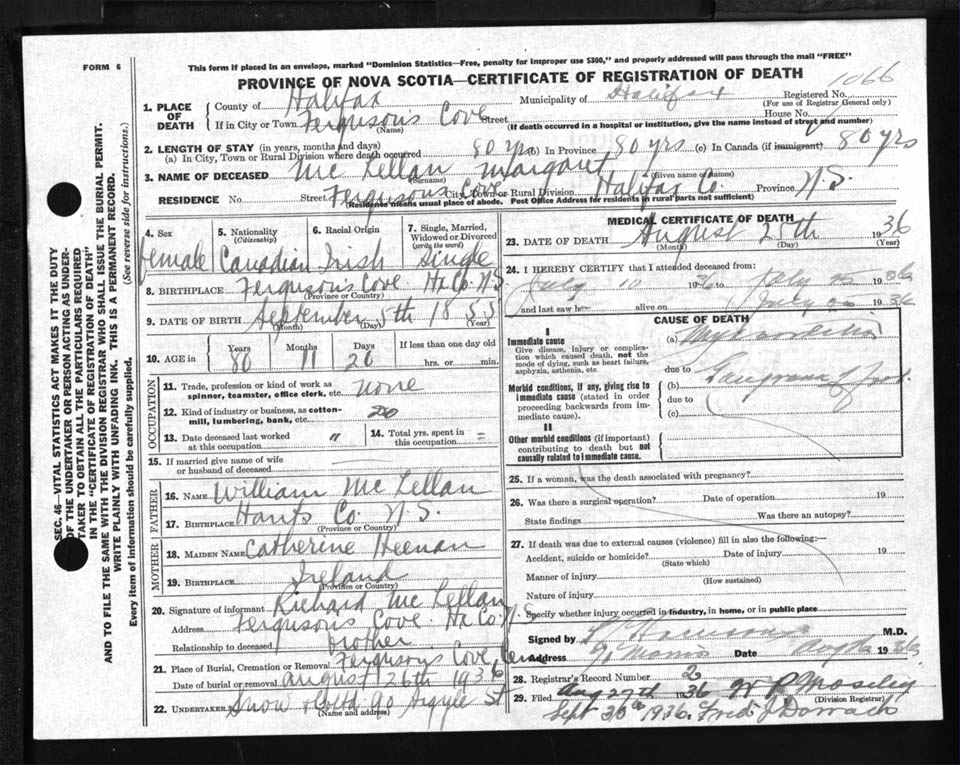 FORM 6
This form if placed in an envelope, marked "Dominion Statistics—Free, penalty for improper use $300," and properly addressed will pass through the mail "FREE"
PROVINCE OF NOVA SCOTIA—CERTIFICATE OF REGISTRATION OF DEATH
1066
1. PLACE OF DEATH
County of Halifax
Municipality of Halifax
Registered No.
(For use of Registrar General only)
If in City or Town Ferguson's Cove Street
House No.
(Name)
(If death occurred in a hospital or institution, give the name instead of street and number)
2. LENGTH OF STAY (in years, months and days)
(a) In City, Town or Rural Division where death occurred 80 yrs (b) In Province 80 yrs (c) In Canada (if immigrant) 80 yrs
3. NAME OF DECEASED Mc Lellan Margaret
(Surname) (Given name or names)
RESIDENCE No. Street Ferguson's Cove City, Town or Rural Division Halifax Co. Province N.S.
(Residence means usual place of abode. Post Office Address for residents in rural parts not sufficient)
4. Sex
female
5. Nationality
(Citizenship)
Canadian
6. Racial Origin
Irish
7. Single, Married, Widowed or Divorced
(write the word)
Single
8. BIRTHPLACE Ferguson's Cove. Hx Co. N.S.
(Province or Country)
9. DATE OF BIRTH September 5th 1855
(Month) (Day) (Year)
10. AGE in
Years Months Days
80 11 20
If less than one day old
hrs. or min.
OCCUPATION
11. Trade, profession or kind of work as spinner, teamster, office clerk, etc. none
12. Kind of industry or business, as cotton-mill, lumbering, bank, etc. do
13. Date deceased last worked at this occupation "
14. Total yrs. spent in this occupation =
15. If married give name of wife or husband of deceased
FATHER
16. NAME William Mc Lellan
17. BIRTHPLACE Hants Co. N.S.
(Province or Country)
MOTHER
18. MAIDEN NAME Catherine Heenan
19. BIRTHPLACE Ireland
(Province or Country)
20. Signature of informant Richard Mc Lellan
Address Ferguson's Cove. Hx Co. N.S.
Relationship to deceased brother
21. Place of Burial, Cremation or Removal Ferguson's Cove
Date of burial or removal August 26th 1936
22. UNDERTAKER Snow & Co Ltd 90 Argyle St
(Name and address)
MEDICAL CERTIFICATE OF DEATH
23. DATE OF DEATH August 25th 1936
(Month) (Day) (Year)
24. I HEREBY CERTIFY that I attended deceased from:
July 10 1936 to July 1936
and last saw her alive on July 1936
CAUSE OF DEATH
I
Immediate cause
Give disease, injury or complication which caused death, not the mode of dying, such as heart failure, asphyxia, asthenia, etc.
(a)
due to
Morbid conditions, if any, giving rise to immediate cause (stated in order proceeding backwards from immediate cause).
(b) Gangrene of foot
due to
(c)
II
Other morbid conditions (if important) contributing to death but not causally related to immediate cause.
25. If a woman, was the death associated with pregnancy?
26. Was there a surgical operation? Date of operation 19
State findings Was there an autopsy?
27. If death was due to external causes (violence) fill in also the following:—
Accident, suicide or homicide? Date of injury 19
(State which)
Manner of injury
(How sustained)
Nature of injury
Specify whether injury occurred in industry, in home, or in public place
Signed by M.D.
Address Morris Date Aug 1936
28. Registrar's Record Number 2
29. Filed Aug 27th 1936 W P Moseley
(Division Registrar)
Sept 30th 1936. Fred J Darrach
SEC. 46—VITAL STATISTICS ACT MAKES IT THE DUTY OF THE UNDERTAKER OR PERSON ACTING AS UNDERTAKER TO OBTAIN ALL THE PARTICULARS REQUIRED IN THE "CERTIFICATE OF REGISTRATION OF DEATH" AND TO FILE THE SAME WITH THE DIVISION REGISTRAR WHO SHALL ISSUE THE BURIAL PERMIT.
WRITE PLAINLY WITH UNFADING INK. THIS IS A PERMANENT RECORD.
Every item of information should be carefully supplied. (See reverse side for instructions.)